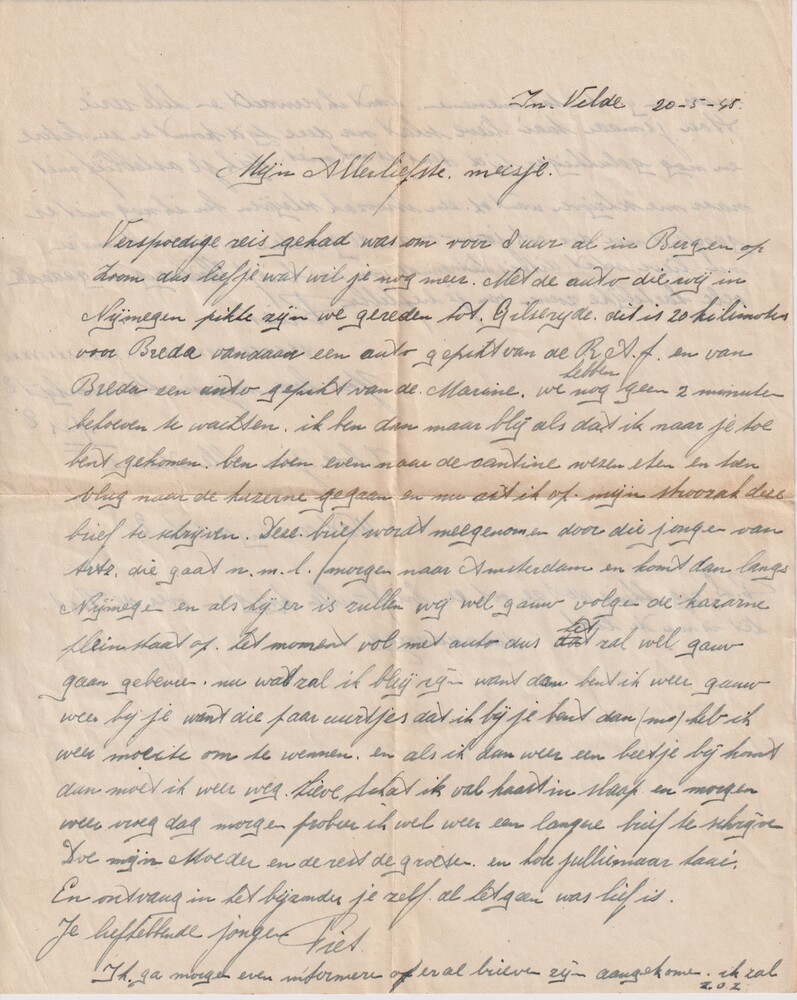 In. Velde 20-5-45.
Mijn Allerliefste. meisje.
Verspoedige reis gehad was om voor 8 uur al in Bergen op
Zoom dus liefje wat wil je nog meer. Met de auto die wij in
Nijmegen pikte zijn we gereden tot. Gilserijde. dit is 20 kilimeter
voor Breda vandaar een auto gepikt van de R.A.f. en van
Breda een auto gepikt van de. Marine. we hebben nog geen 2 minuten
behoeven te wachten. ik ben dan maar blij als dat ik naar je toe
bent gekomen. ben toen even naar de cantine wezen eten en toen
vlug naar de kazerne gegaan en nu zit ik op. mijn stroozak deze
brief te schrijven. Deze. brief wordt meegenomen door die jonge van
Artz. die gaat n.m.l. morgen naar Amsterdam en komt dan langs
Nijmege en als hij er is zullen wij wel gauw volge de kazerne
plein staat op. het moment vol met auto dus het zal wel gauw
gaan gebeure. nu wat zal ik blij zijn want dan bent ik weer gauw
weer bij je want die paar uurtjes dat ik bij je bent dan (mo) heb ik
weer moeite om te wennen. en als ik dan weer een beetje bij komt
dan moet ik weer weg. Lieve schat ik val haast in slaap en morgen
weer vroeg dag morge probeer ik wel weer een langere brief te schrijve
Doe mijn Moeder en de rest de groeten. en hou jullie maar taai.
En ontvang in het bijzonder je zelf. al hetgeen was lief is.
Je liefhebbende jongen Piet.
Ik ga morge even informere of er al brieve zijn aangekome. ik zal
z.o.z.